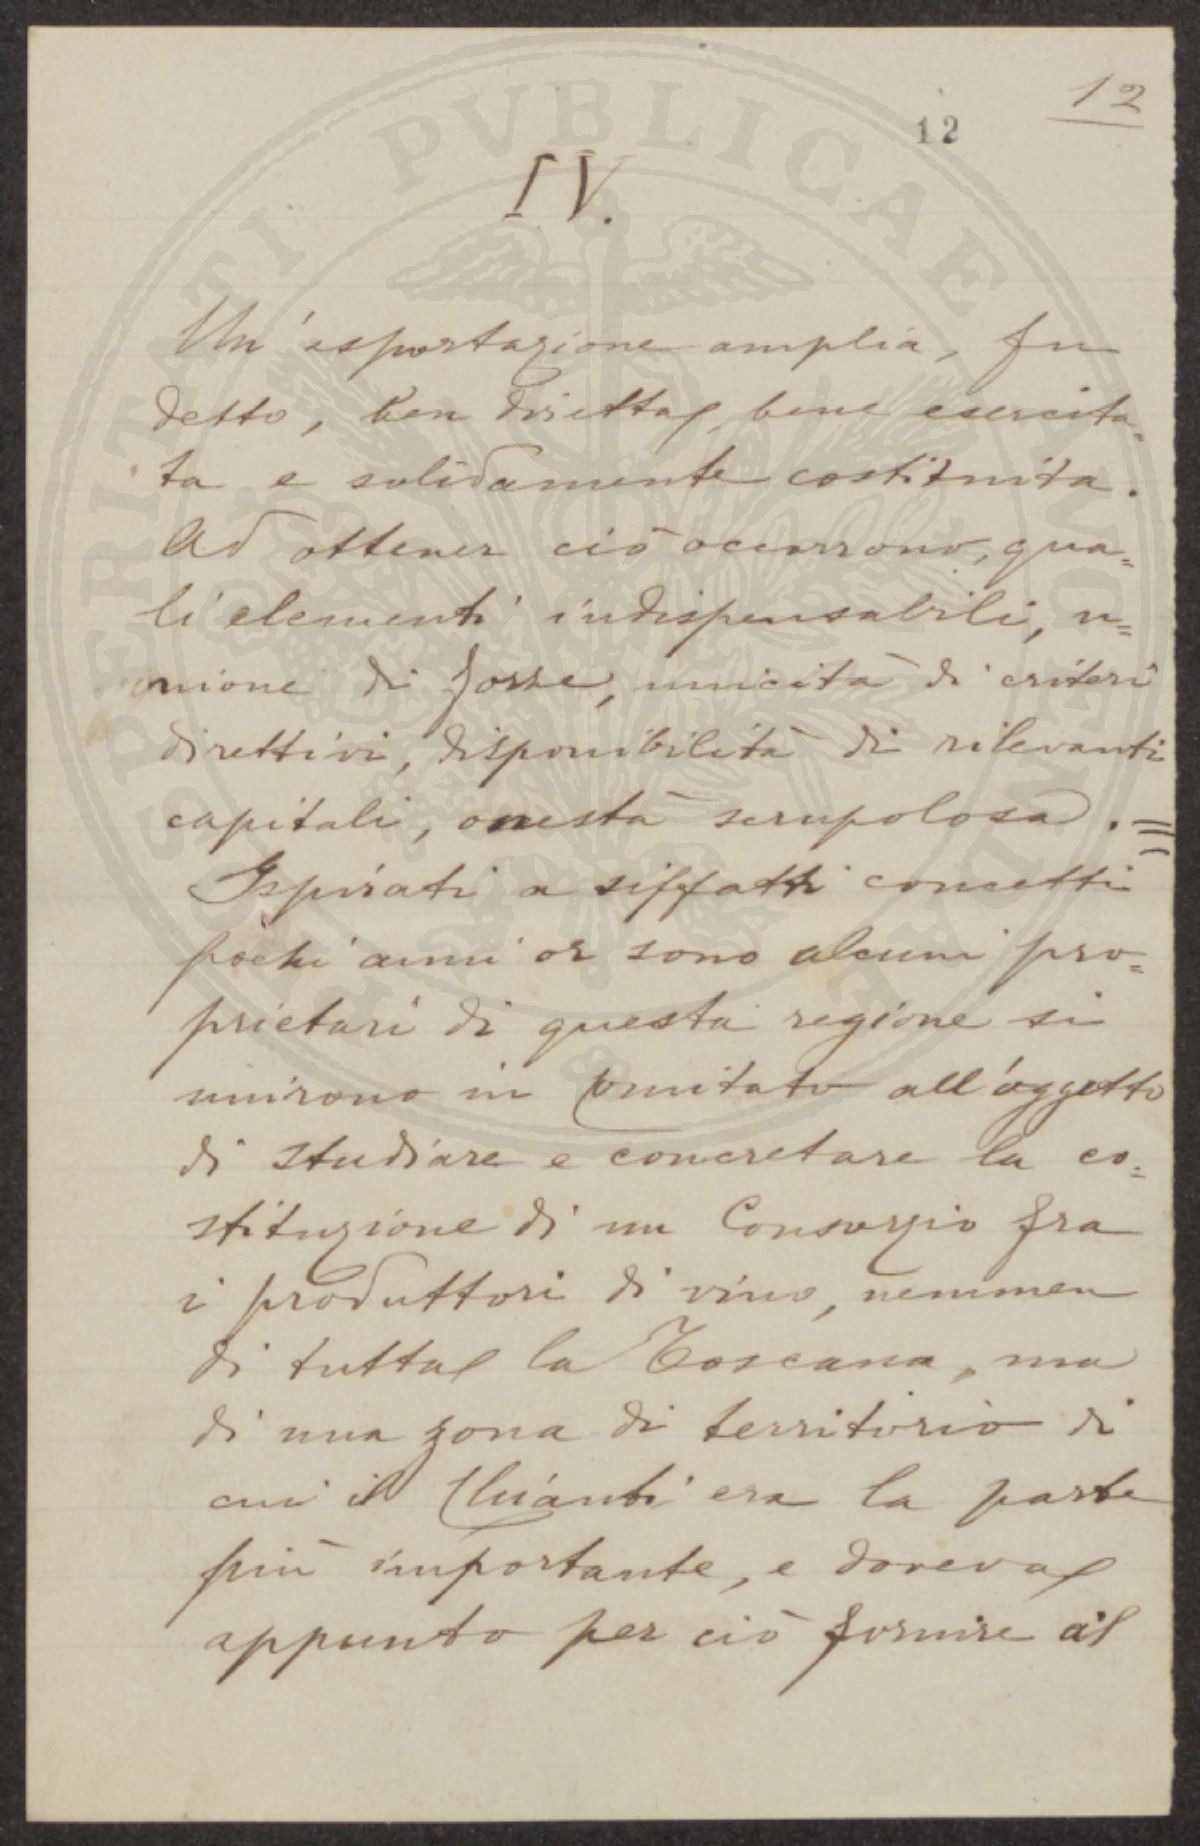 12
12
IV.
Un'esportazione amplia, fu
detto, ben diretta, bene esercita=
ta e solidamente costituita.
Ad ottener ciò occorrono, qua=
li elementi indispensabili, u=
nione di forze, unicità di criterî
direttivi, disponibilità di rilevanti
capitali, onestà scrupolosa. =
Ispirati a siffatti concetti
pochi anni or sono alcuni pro=
prietari di questa regione si
unirono in Comitato all'oggetto
di studiare e concretare la co=
stituzione di un Consorzio fra
i produttori di vino, nemmen
di tutta la Toscana, ma
di una zona di territorio di
cui il Chianti era la parte
più importante, e doveva
appunto per ciò fornire il
PROSPERITATI PVBLICAE AVGENDAE